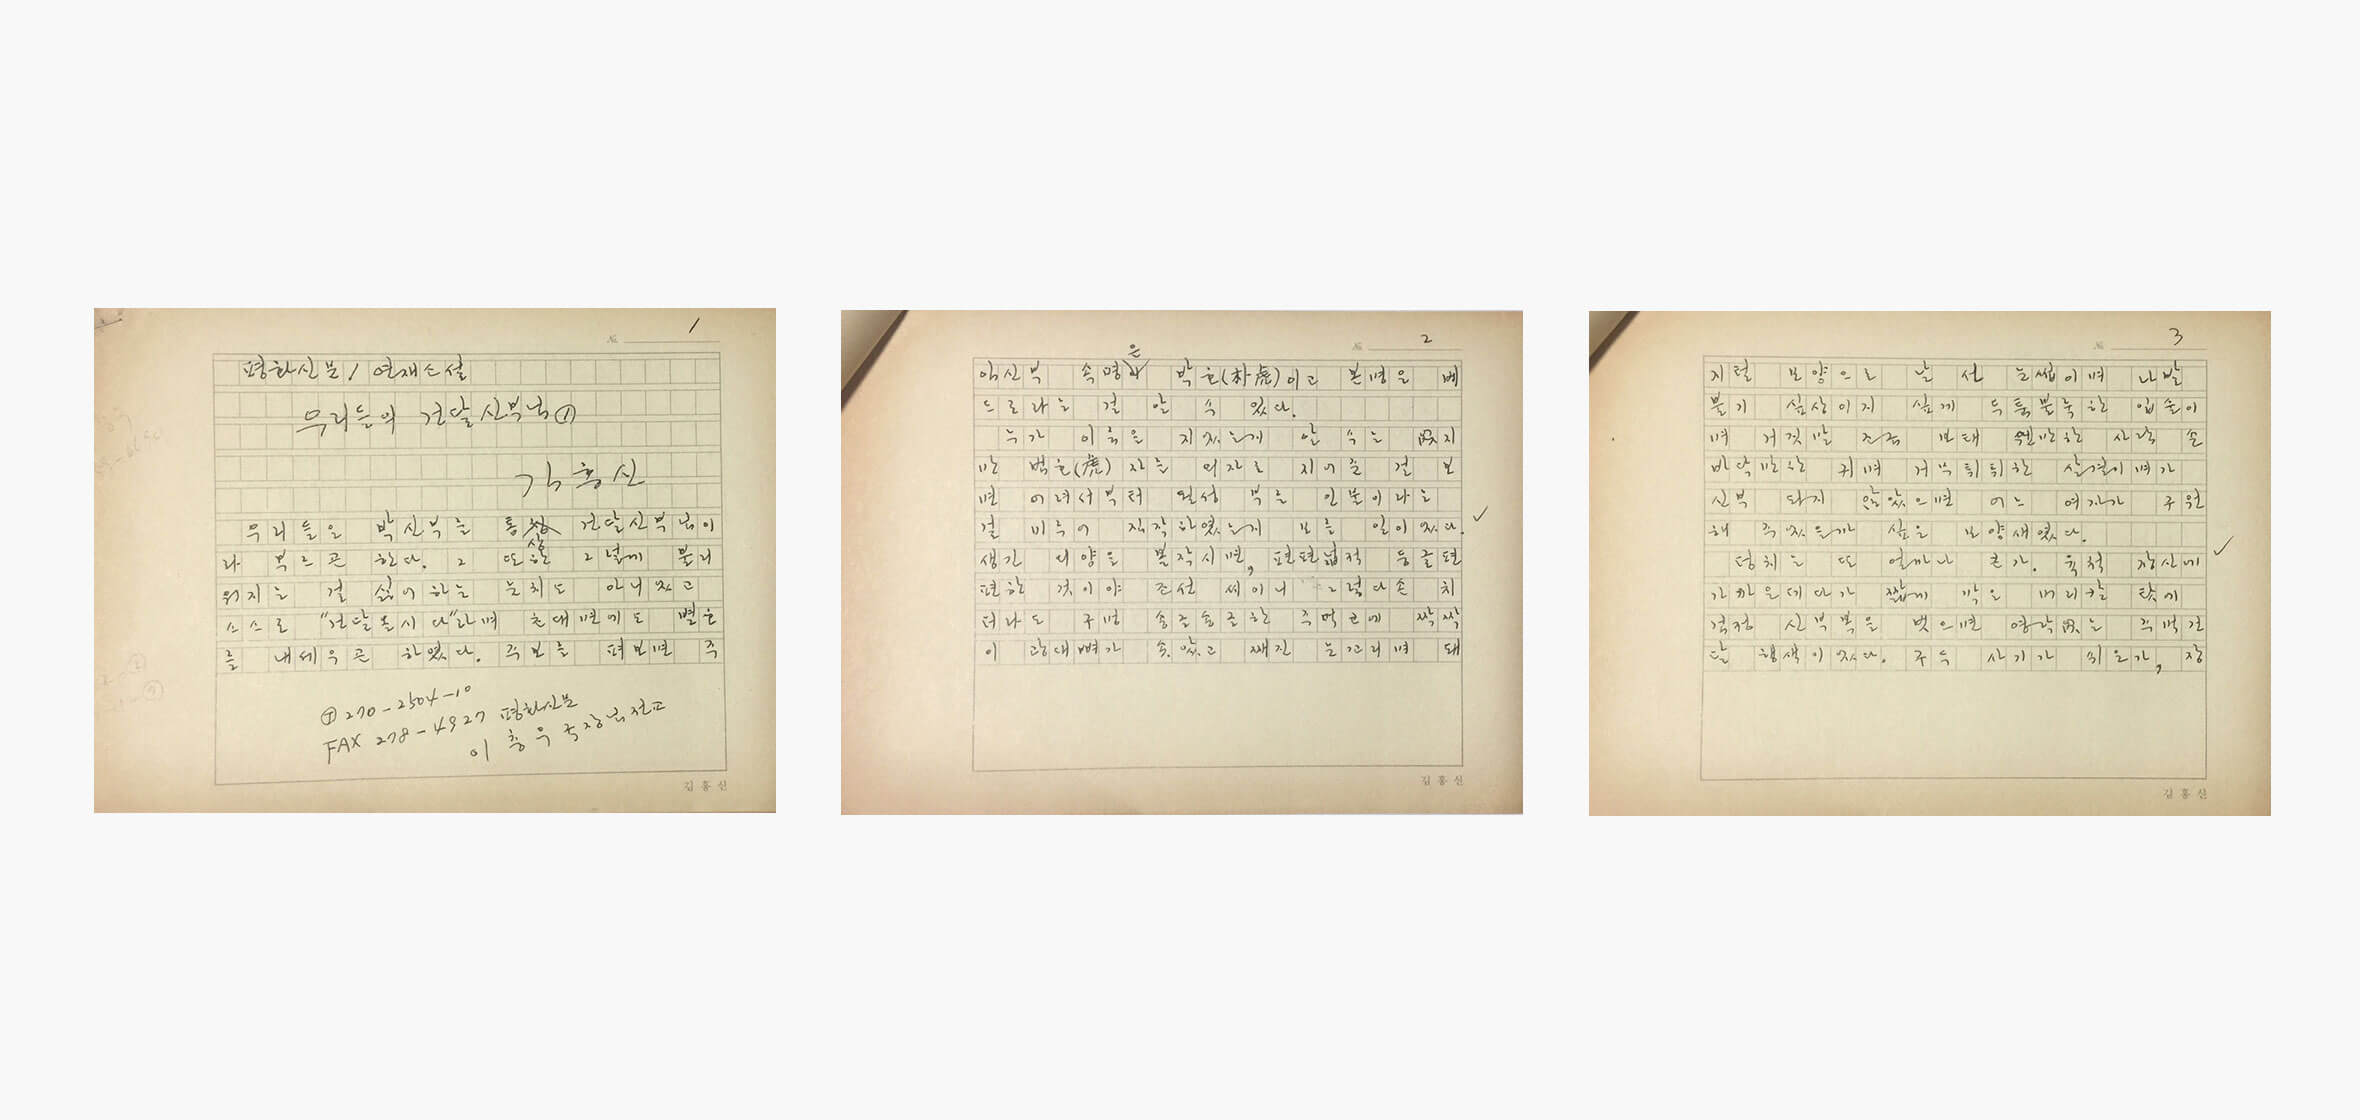 1
평화신문/연재소설
우리들의 건달신부님①
김홍신
우리들은 박신부를 통상 건달신부님이
라 부르곤 한다. 그 또한 그렇게 불리
워지는 걸 싫어하는 눈치도 아니었고
스스로 "건달올시다"라며 초대면에도 별호
를 내세우곤 하였다. 주보를 펴보면 주
Ⓣ 270-2504-10
FAX 278-4927 평화신문
이충우 국장님 전교
김홍신
2
임신부 속명은 박호(朴虎)이고 본명은 베
드로라는 걸 알 수 있다.
누가 이름을 지었는지 알 수는 없지
만 범호(虎) 자를 외자로 지어준 걸 보
면 어려서부터 원성 부를 인물이라는
걸 미루어 짐작하였는지 모를 일이었다.
생긴 모양을 볼작시면, 펀펀넓적 둥글편
편한 것이야 조선 씨이니 그렇다손 치
더라도 구멍 숭숭한 주먹코에 짝짝
이 광대뼈가 솟았고 째진 눈꼬리며 돼
김홍신
3
지털 모양으로 날 선 눈썹이며 나발
불기 십상이지 싶게 두툼불룩한 입술이
며 거짓말 조금 보태 웬만한 사람 손
바닥만한 귀며 거무튀튀한 살결이며가
신부 되지 않았으면 어느 여자가 구원
해 주었을까 싶은 모양새였다.
덩치는 또 얼마나 큰가. 육척 장신에
가까운데다가 짧게 깎은 머리칼 탓에
걱정 신부복을 벗으면 영락없는 주먹건
달 행색이었다. 구두 사기가 쉬운가, 장
김홍신